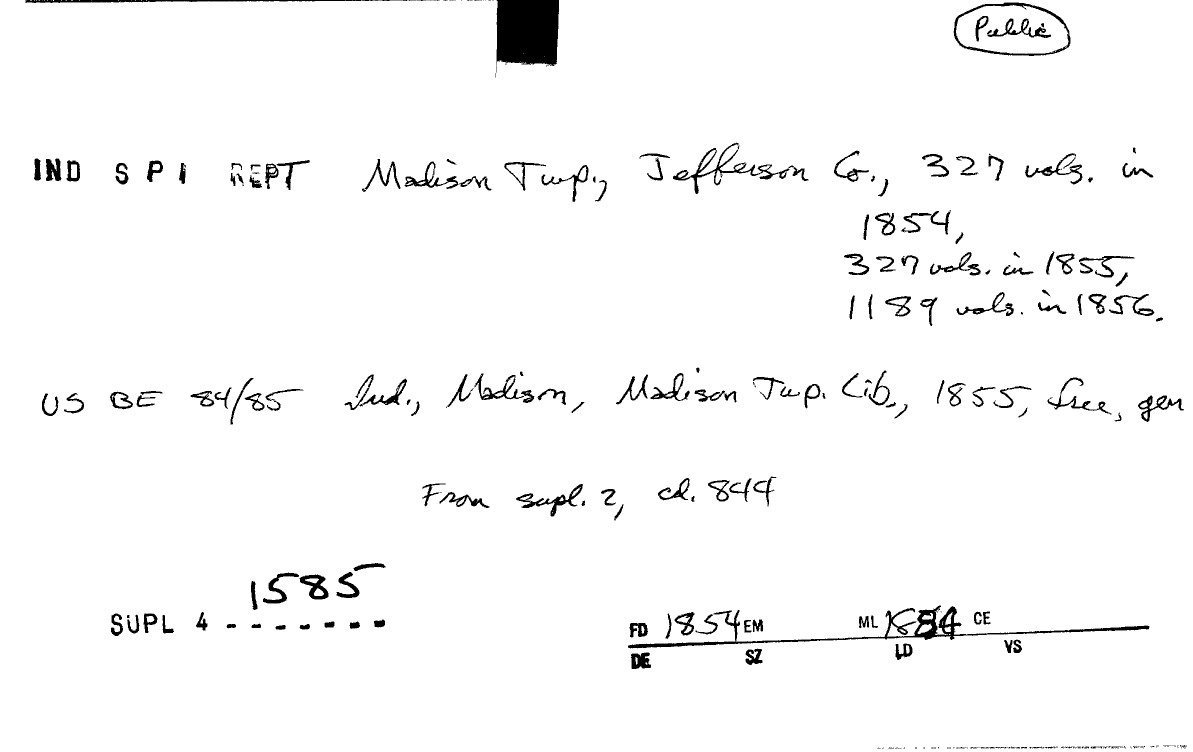 Public
IND S P I REPT Madison Twp., Jefferson Co., 327 vols. in
1854,
327 vols. in 1855,
1189 vols. in 1856.
US BE 84/85 Ind., Madison, Madison Twp. Lib., 1855, free, gen
From supl. 2, cd. 844
1585
SUPL 4 - - - - - - -
FD 1854 EM ML 1884 CE
DE SZ LD VS